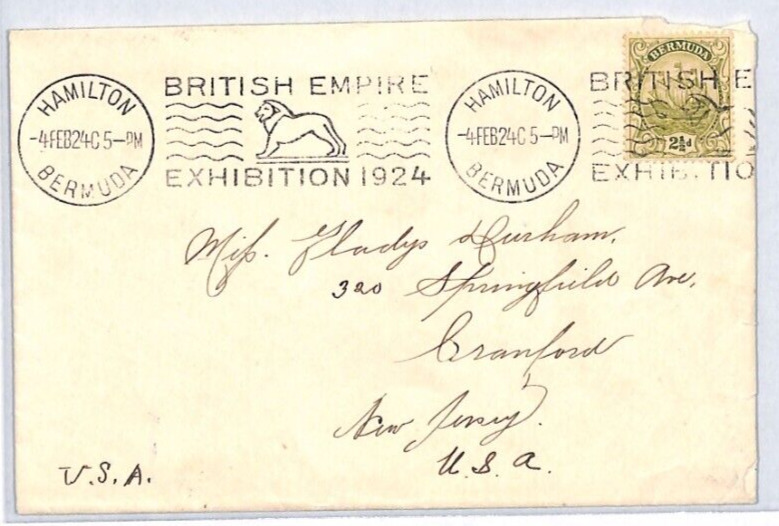 BRITISH EMPIRE
HAMILTON
-4FEB24C 5-PM
BERMUDA
EXHIBITION 1924
HAMILTON
-4FEB24C 5-PM
BERMUDA
BRITISH E
EXHIBITIO
BERMUDA
2½d
Miss. Gladys Durham.
320 Springfield Ave.
Cranford
New Jersey.
U.S.A.
U.S.A.